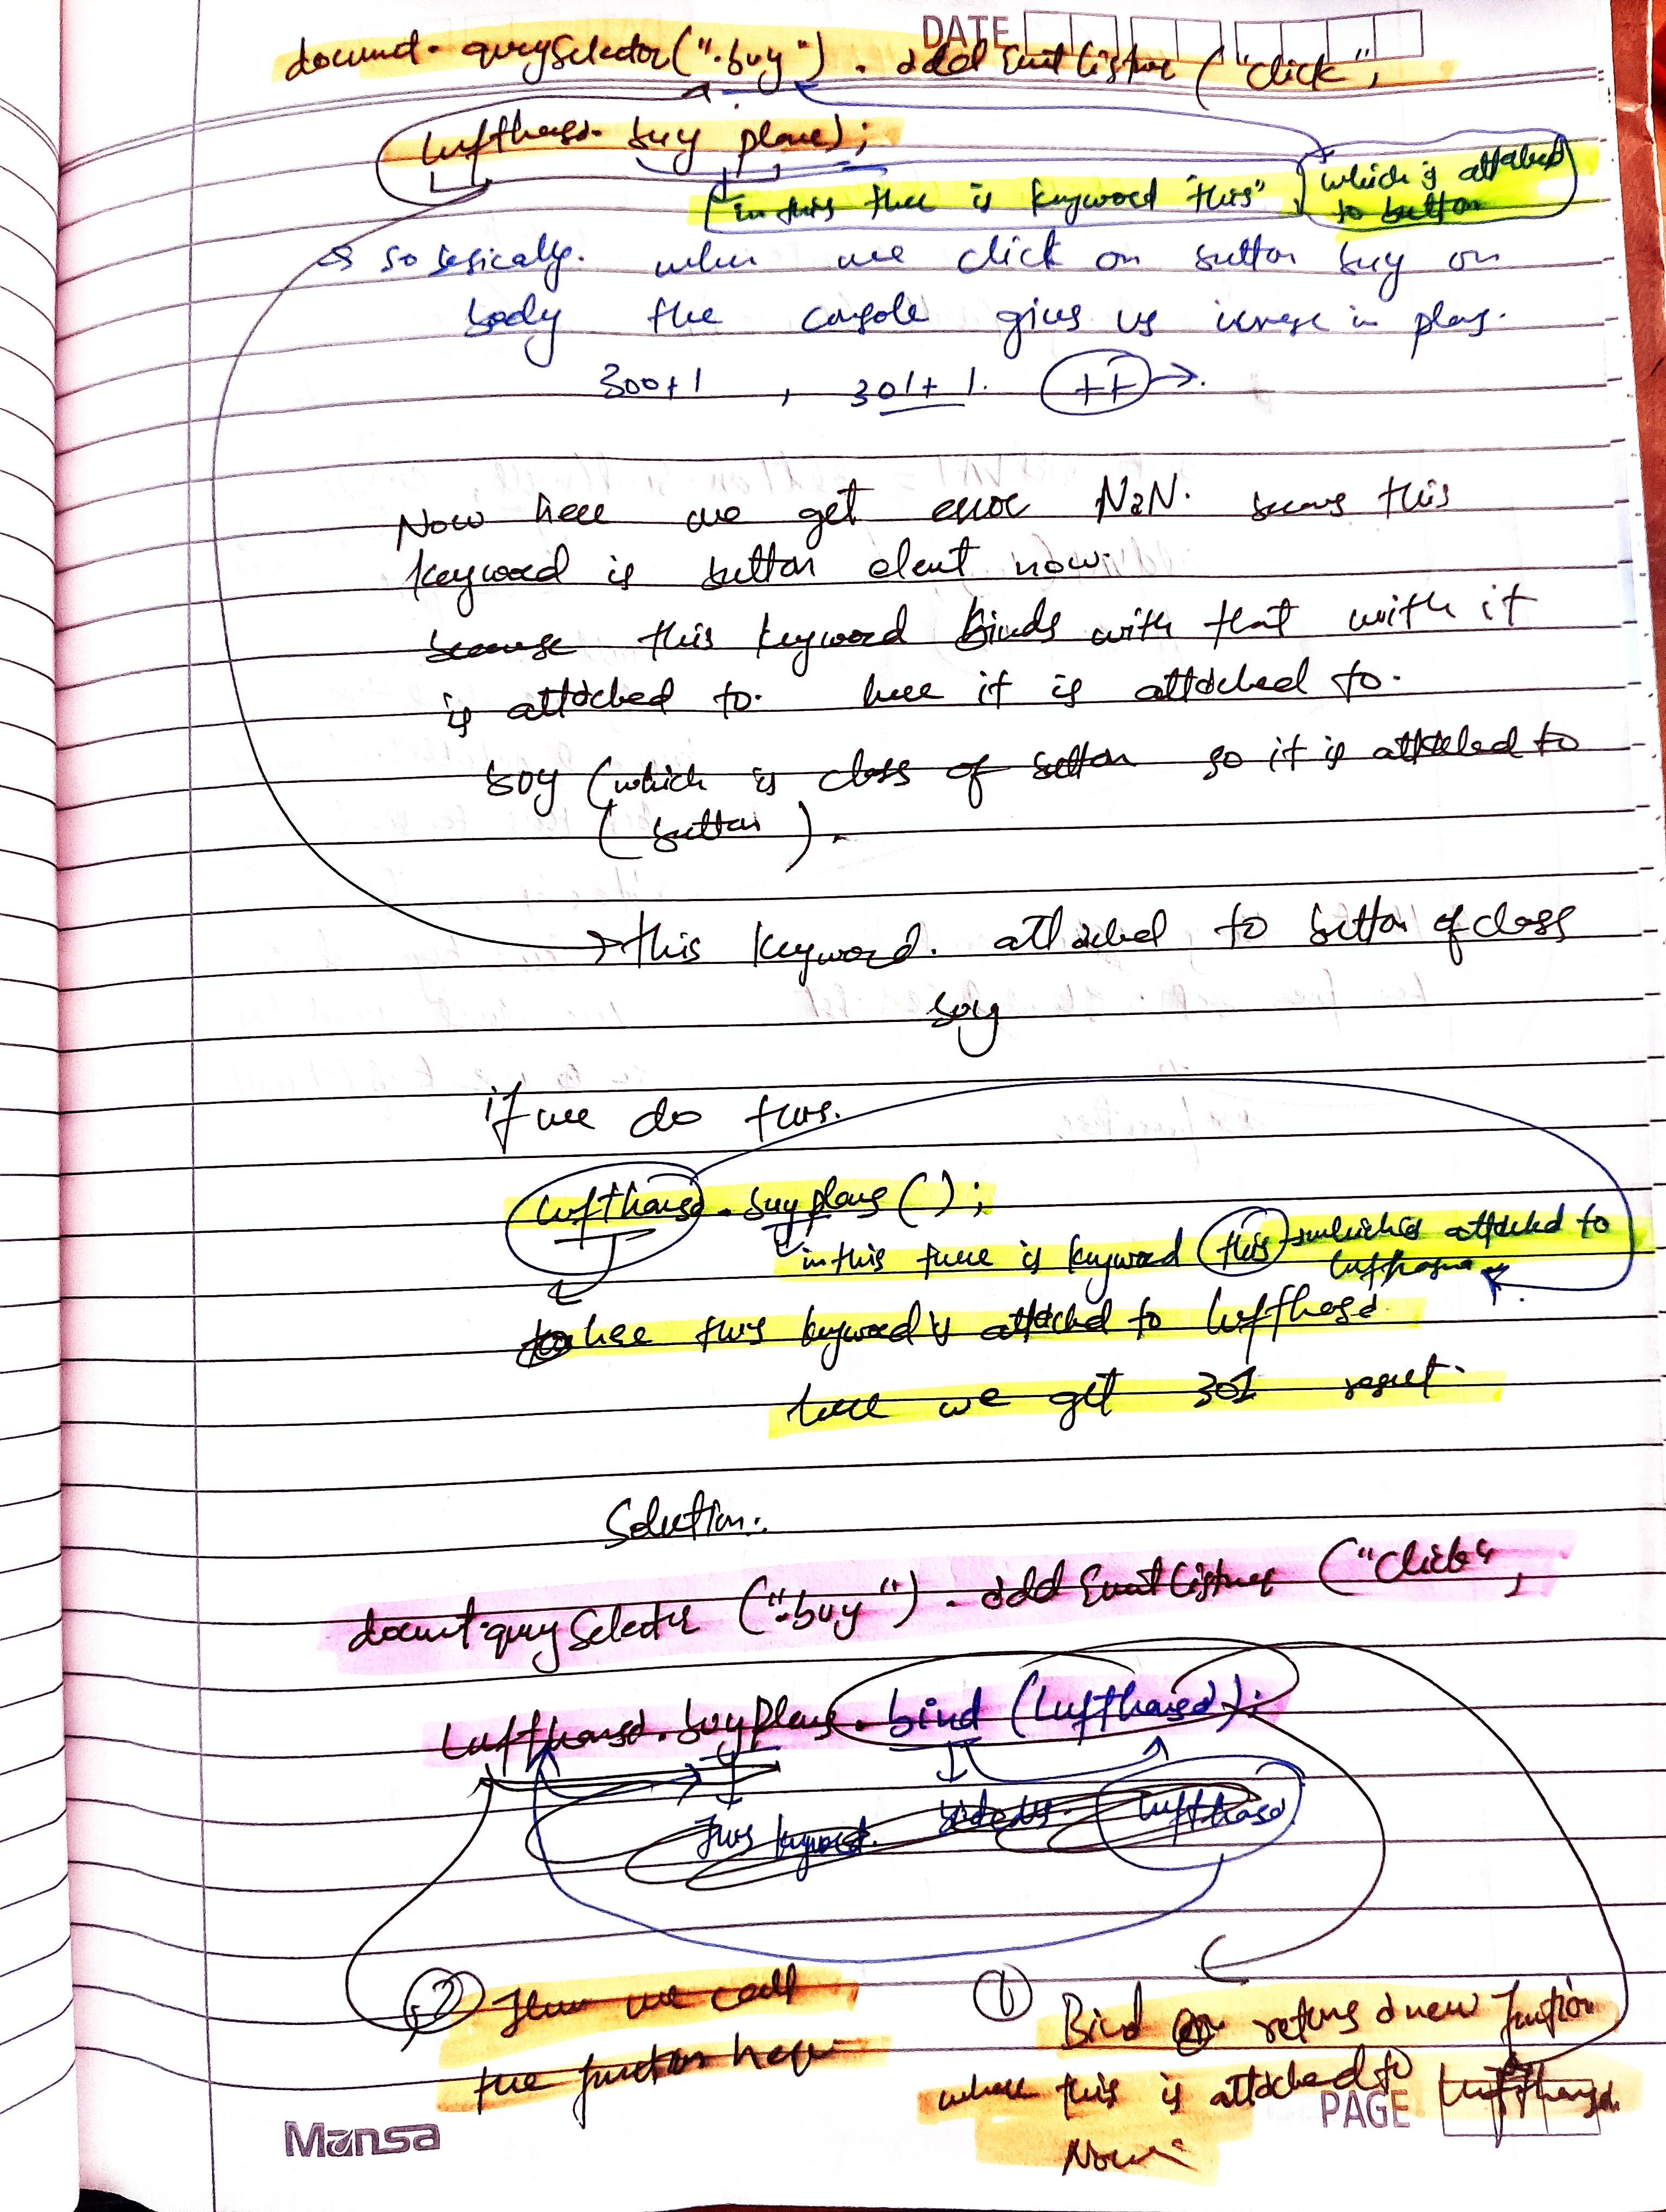 DATE
documnt. querySelector(".buy"). addEventListner ("click",
lufthansa. buy plane);
in this there is keyword "this" which is attached
to button
so basically. when we click on button buy on
body the console gives us increse in plans.
300+1 , 301+1. ++ →.
Now here we get error NaN. becaus this
keyword is button elent now.
because this keyword Binds with that with it
is attached to. here it is attached to.
buy (which is class of button so it is attached to
(button).
→ this keyword. attached to button of class
buy
if we do this.
lufthansa.buyplane();
in this there is keyword this which is attached to
lufthansa
here this keyword is attached to lufthasa
here we get 301 result.
Solution:
documt.querySelector (".buy"). addEventListner ("Click",
lufthansa.buyPlane.bind (lufthansa);
This keyword. lufthasa
② Then we call
the function here
① Bind returns a new function
where this is attached to lufthansa
Now
PAGE
Mansa